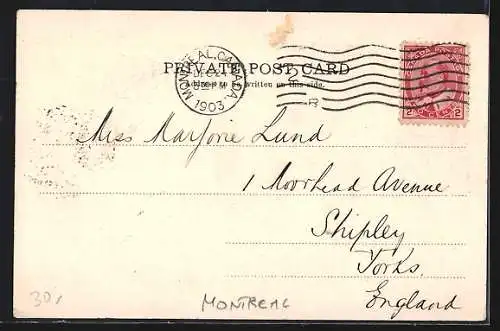 MONTREAL, CANADA
DEC 2
1903
PRIVATE POST CARD
Address to be written on this side.
CANADA POSTAGE
2 CENTS 2
Miss Marjorie Lund
1 Moorhead Avenue
Shipley
Yorks.
England
30,
MONTREAL